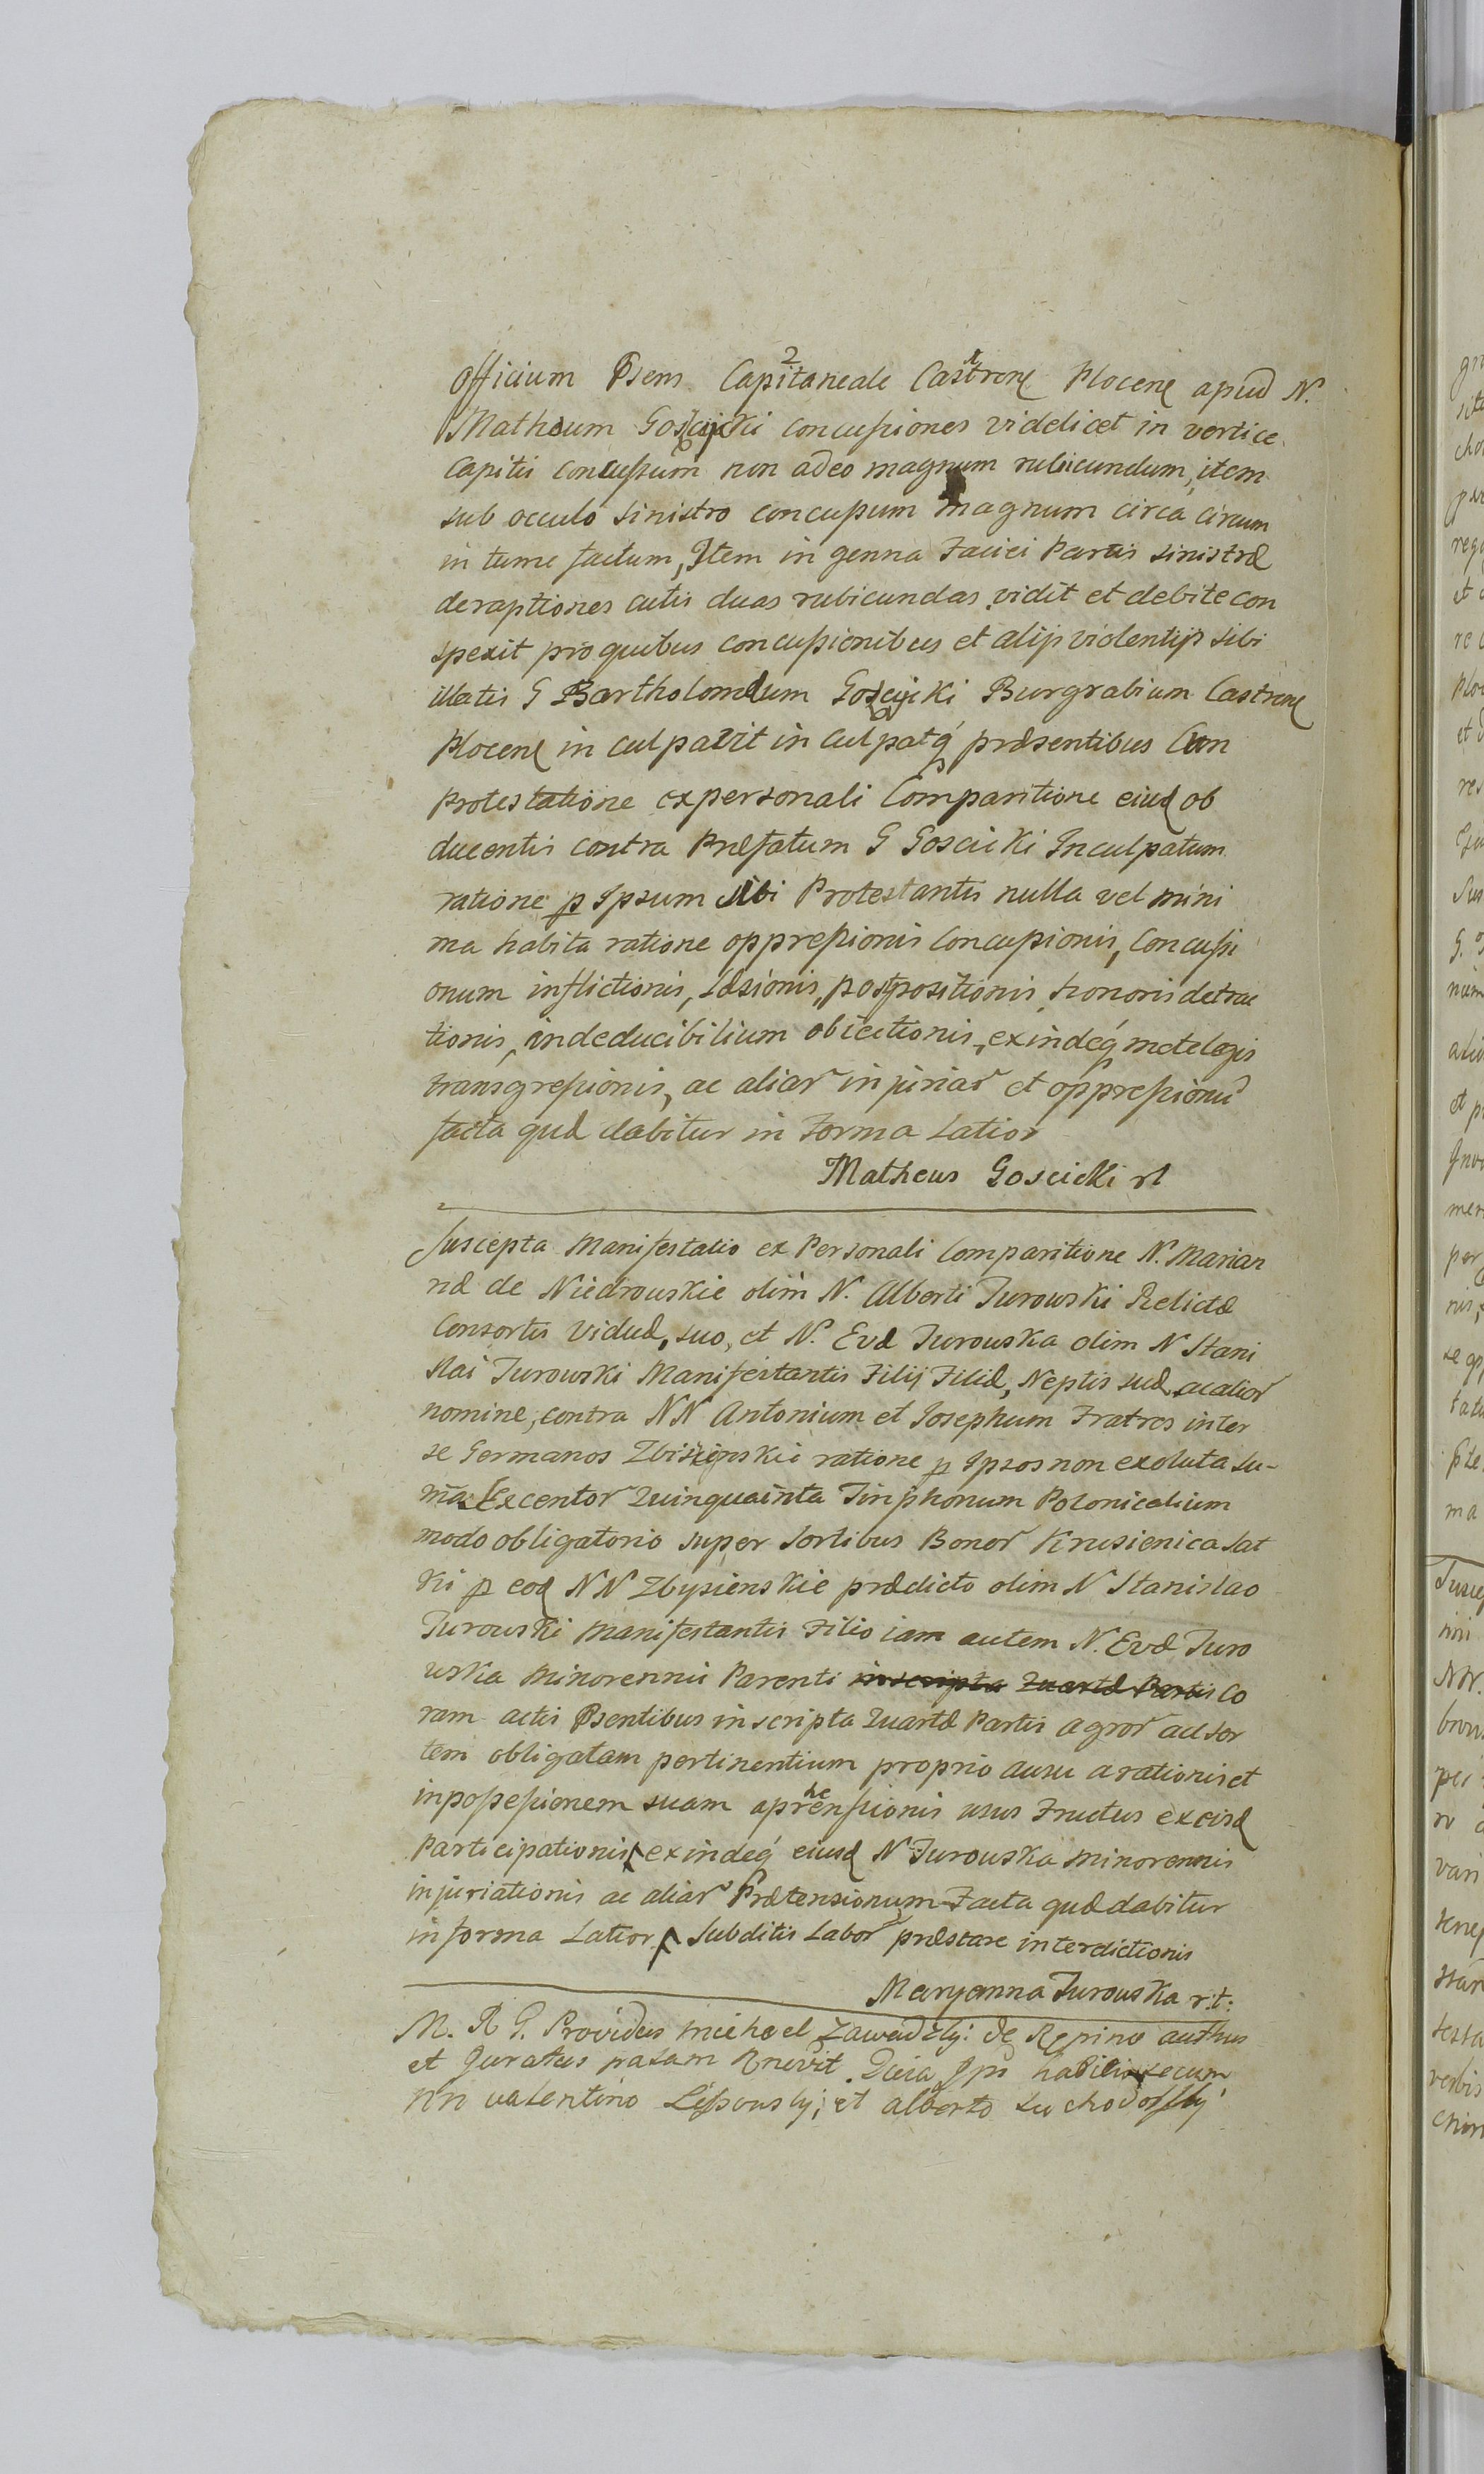 Officium Psens Capitaneale Castrens Plocens apud N.
Matheum Goscicki concussiones videlicet in vertice
Capitis concussum non adeo magnum rubicundum, item
sub occulo sinistro concussum magnum circa circum
in tume factum, Item in genna Faciei Partis sinistræ
deraptiones cutis duas rubicundas vidit et debite con
spexit pro quibus concussionibus et alijs violentijs sibi
illatis G Bartholomæum Goscicki Burgrabium Castrens
Plocens in culpavit in culpatq́ præsentibus Cum
Protestatione ex personali Comparitione eiusd ob
ducentis contra Præfatum G Goscicki Inculpatum
ratione p Ipsum sibi Protestantis nulla vel mini
ma habita ratione oppressionis Concussionis, Concussi
onum inflictionis, Læsionis, postpositionis honoris detrac
tionis, indeducibilium obiectionis, exindeq́ metæ legis
transgressionis, ac aliar injuriar et oppressionū
facta quæ dabitur in Forma Latior
Matheus Goscicki rt
Suscepta Manifestatio ex Personali Comparitione N. Marian
næ de Niedrouskie olim N. Alberti Turowski Relictæ
Consortis Viduæ, suo, et N. Evæ Turouska olim N Stani
slai Turowski Manifestantis Filij Filiæ, Neptis suæ, acalior
nomine, contra NN Antonium et Josephum Fratres inter
se Germanos Zbisienskie ratione p Ipsos non exoluta su-
ma Sexcentor Quinquainta Tinphonum Polonicalium
modo obligatorio super Sortibus Bonor Krusienica Sat
ki p eosd NN Zbysienskie prædicto olim N Stanislao
Turouski Manifestantis Filio iam autem N. Evæ Turo
uska Minorennis Parenti inscripta Quartæ Partis Co
ram actis Psentibus inscripta Quartæ Partis agror ad sor
tem obligatam pertinentium proprio ausu arationis et
in possessionem suam aprehensionis usus Fructus ex eisd
Participationis exindeq́ eiusd N Turouska Minorennis
injuriationis ac aliar Prætensionum Facta quæ dabitur
in forma Latior, Subditis Labor præstare interdictionis
Maryanna Turouska r.t:
M. R G. Providus michael Zawadzkj: de Repino authus
et Juratus palam Rnovit Quia Ips habitis secum
nn valentino Lissowskj; et alberto suchodolskj